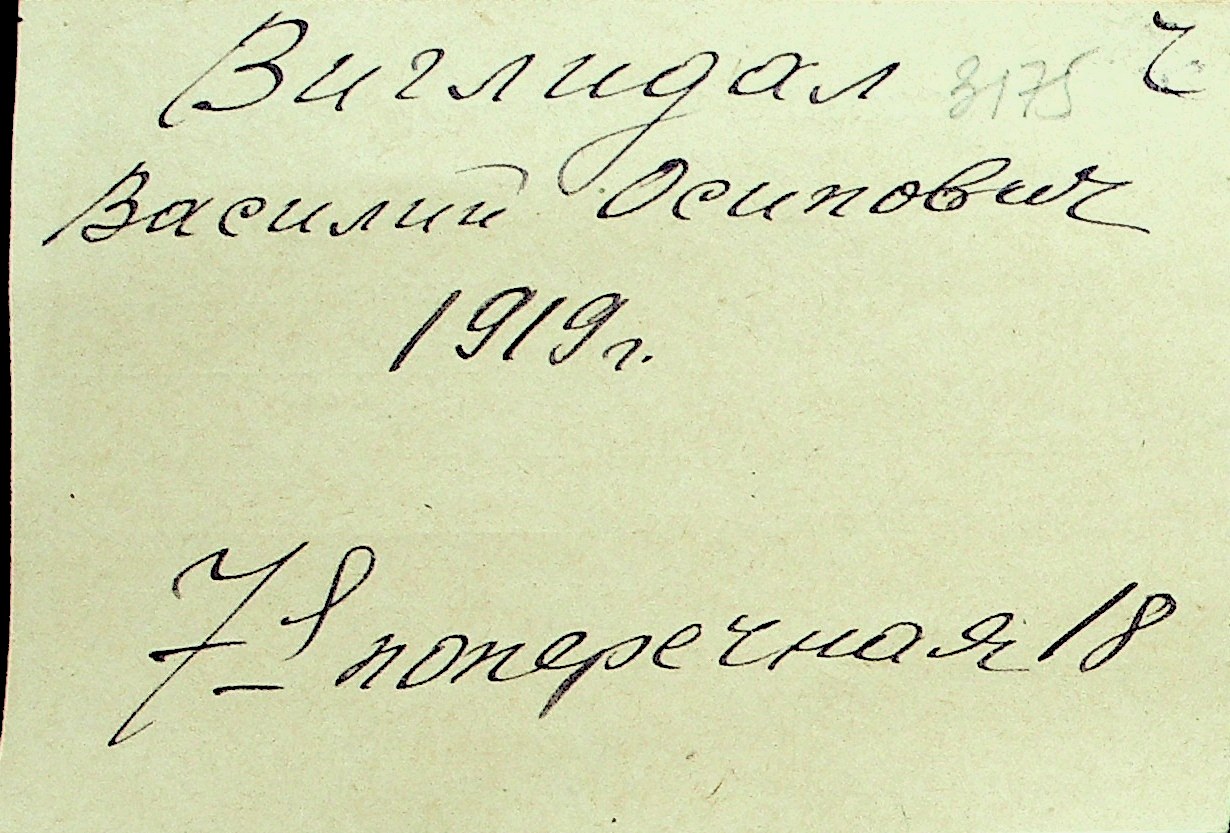 Виглидал 3175 ч
Василий Осипович
1919 г.
7-я поперечная 18